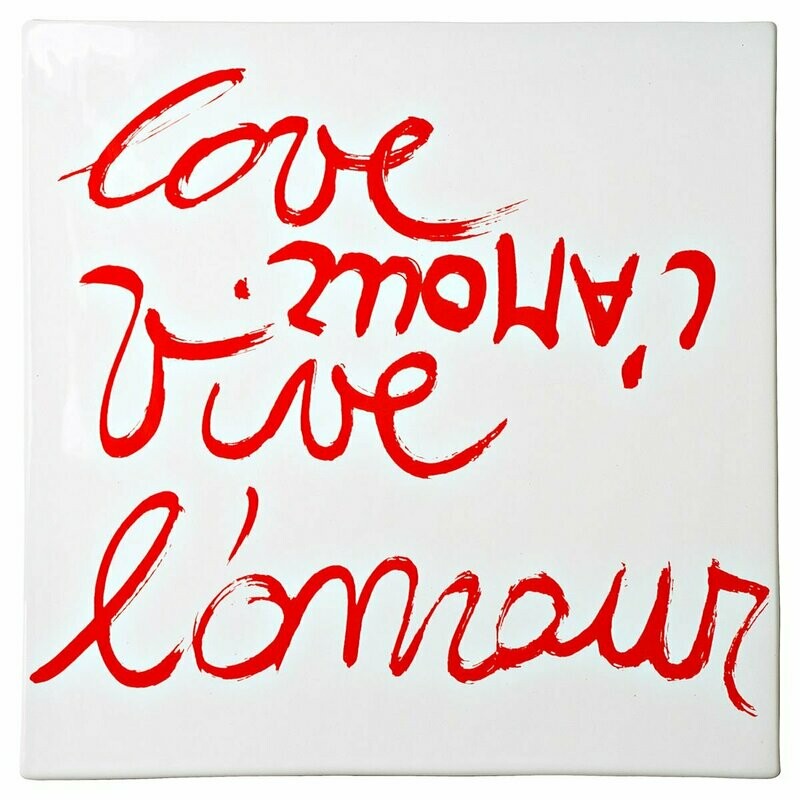 love
L'AMOUR
Vive
l'amour